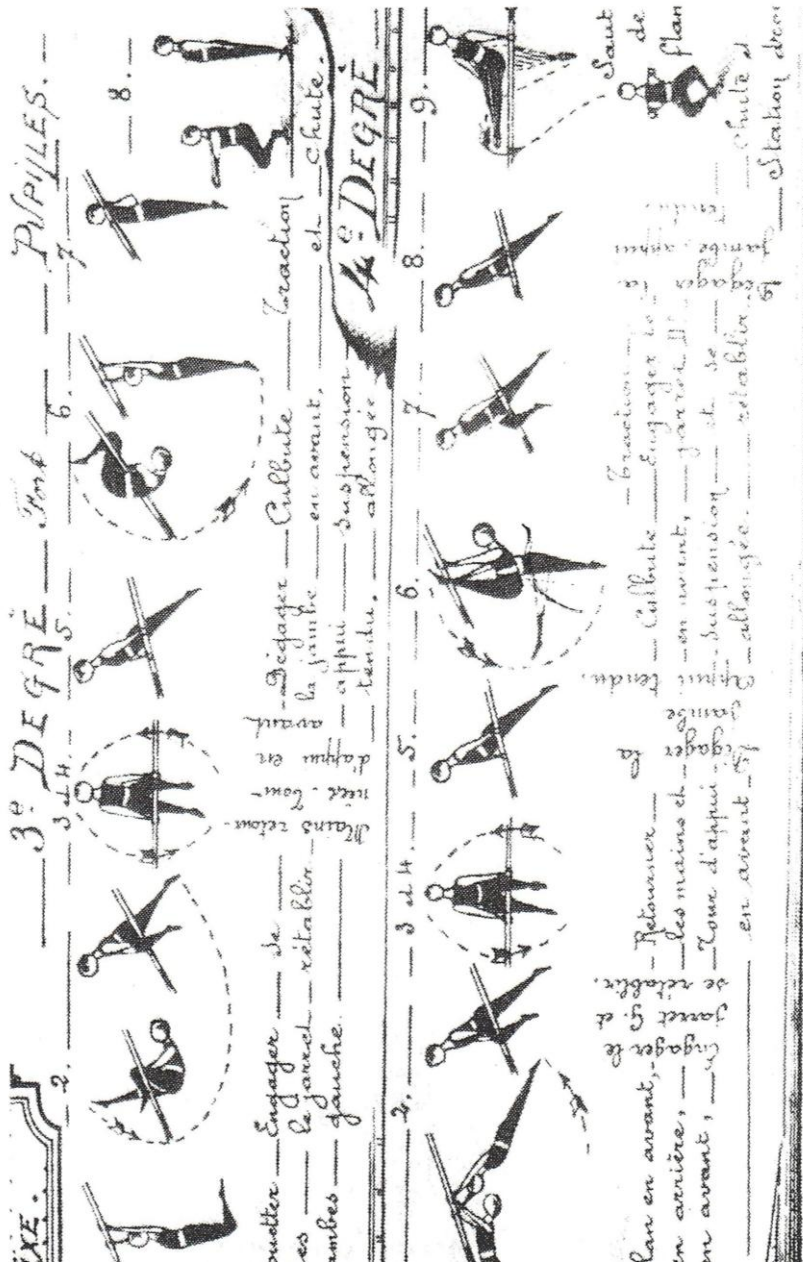 IXE.
3e DEGRÉ — Fort — PUPILLES.
2. — 3 et 4. — 5. — 6. — 7. — 8.
ouetter — Engager — se
es — le jarret — rétablir
ambes — gauche.
Mains retour-
nées. Tour
d'appui en
avant
Dégager — Culbute — Traction
la jambe — en avant, — et chute.
appui — suspension
tendu. — allongée
4e DEGRÉ
2. — 3 et 4. — 5. — 6. — 7. — 8. — 9.
lan en avant,
en arrière,
en avant,
Engager le
jarret G. et
se rétablir.
Retourner
les mains et
Tour d'appui
en avant
Dégager la
jambe
Appui tendu.
Culbute
en avant,
suspension
allongée.
Traction
Engager le
jarret D.
et se
rétablir
Dégager la
jambe, appui
tendu.
Saut
de
flan
Chute d
Station droi